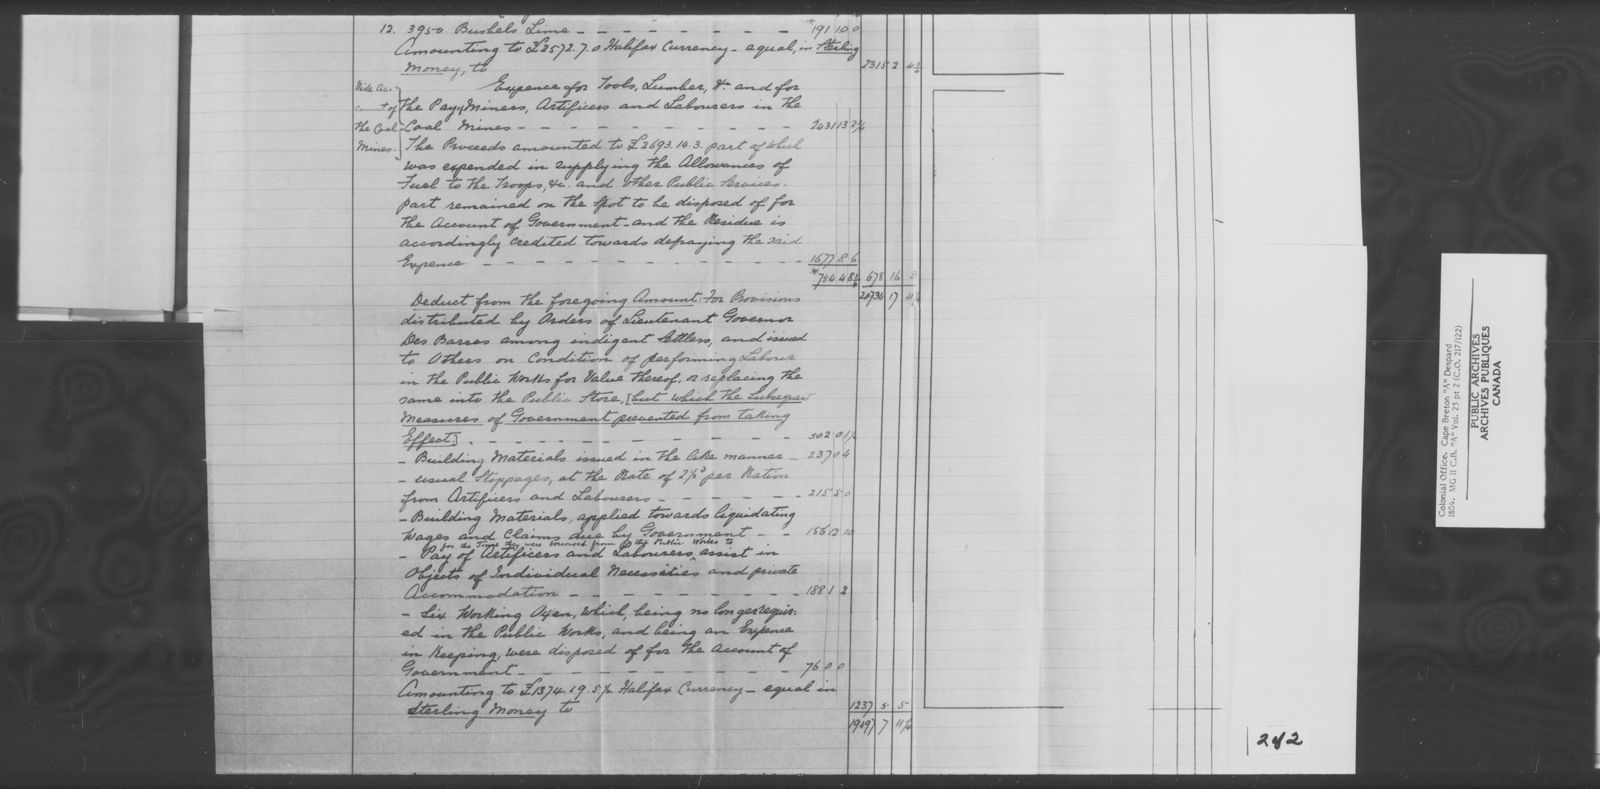 12. 3950 Bushels Lime - - - - - - - - *191 10 0
Amounting to £2572.7.0 Halifax Currency - equal, in Sterling
Money, to 2315 2 4
Vide Ac. Expence for Tools, Lumber, &c. and for
count of the Pay, Miners, Artificers and Labourers in the
the Coal Coal Mines - - - - - - - - 2431 13 2¼
Mines. The Proceeds amounted to £2693.14.3. part of which
was expended in supplying the Allowances of
Fuel to the Troops, &c. and other Public Services.
part remained on the spot to be disposed of for
the Account of Government - and the Residue is
accordingly credited towards defraying the said
Expence - - - - - - - - 1677 8 6
*754 4 8 678 16
20734 17
Deduct from the foregoing Amount: For Provisions
distributed by Orders of Lieutenant Governor
Des Barres among indigent Settlers, and issued
to Others on Condition of performing Labour
in the Public Works for Value thereof, or replacing the
same into the Public Store, [but which the Subsequent
Measures of Government prevented from taking
Effect]. - - - - - - - - 502 0 1½
- Building Materials issued in the like manner - 237 0 4
- usual Stoppages, at the Rate of 2½d per Ration
from Artificers and Labourers - - - - 215 5 0
- Building Materials, applied towards liquidating
Wages and Claims due by Government - - 156 12 10
for the Time they were borrowed from the Public Works to
- Pay of Artificers and Labourers, assist in
Objects of Individual Necessities and private
Accommodation - - - - - - - - 188 1 2
- Six Working Oxen, which, being no longer requir-
ed in the Public Works, and being an Expence
in Keeping, were disposed of for the Account of
Government - - - - - - - - 76 0 0
Amounting to £1374.19.5½ Halifax Currency - equal in
Sterling Money to 1237 5 5
19497 7 11¼
2 of 2
Colonial Office. Cape Breton "A" Despard
1804. MG II C.B. "A" Vol. 25 pt 2 (C.O. 217/122)
PUBLIC ARCHIVES
ARCHIVES PUBLIQUES
CANADA